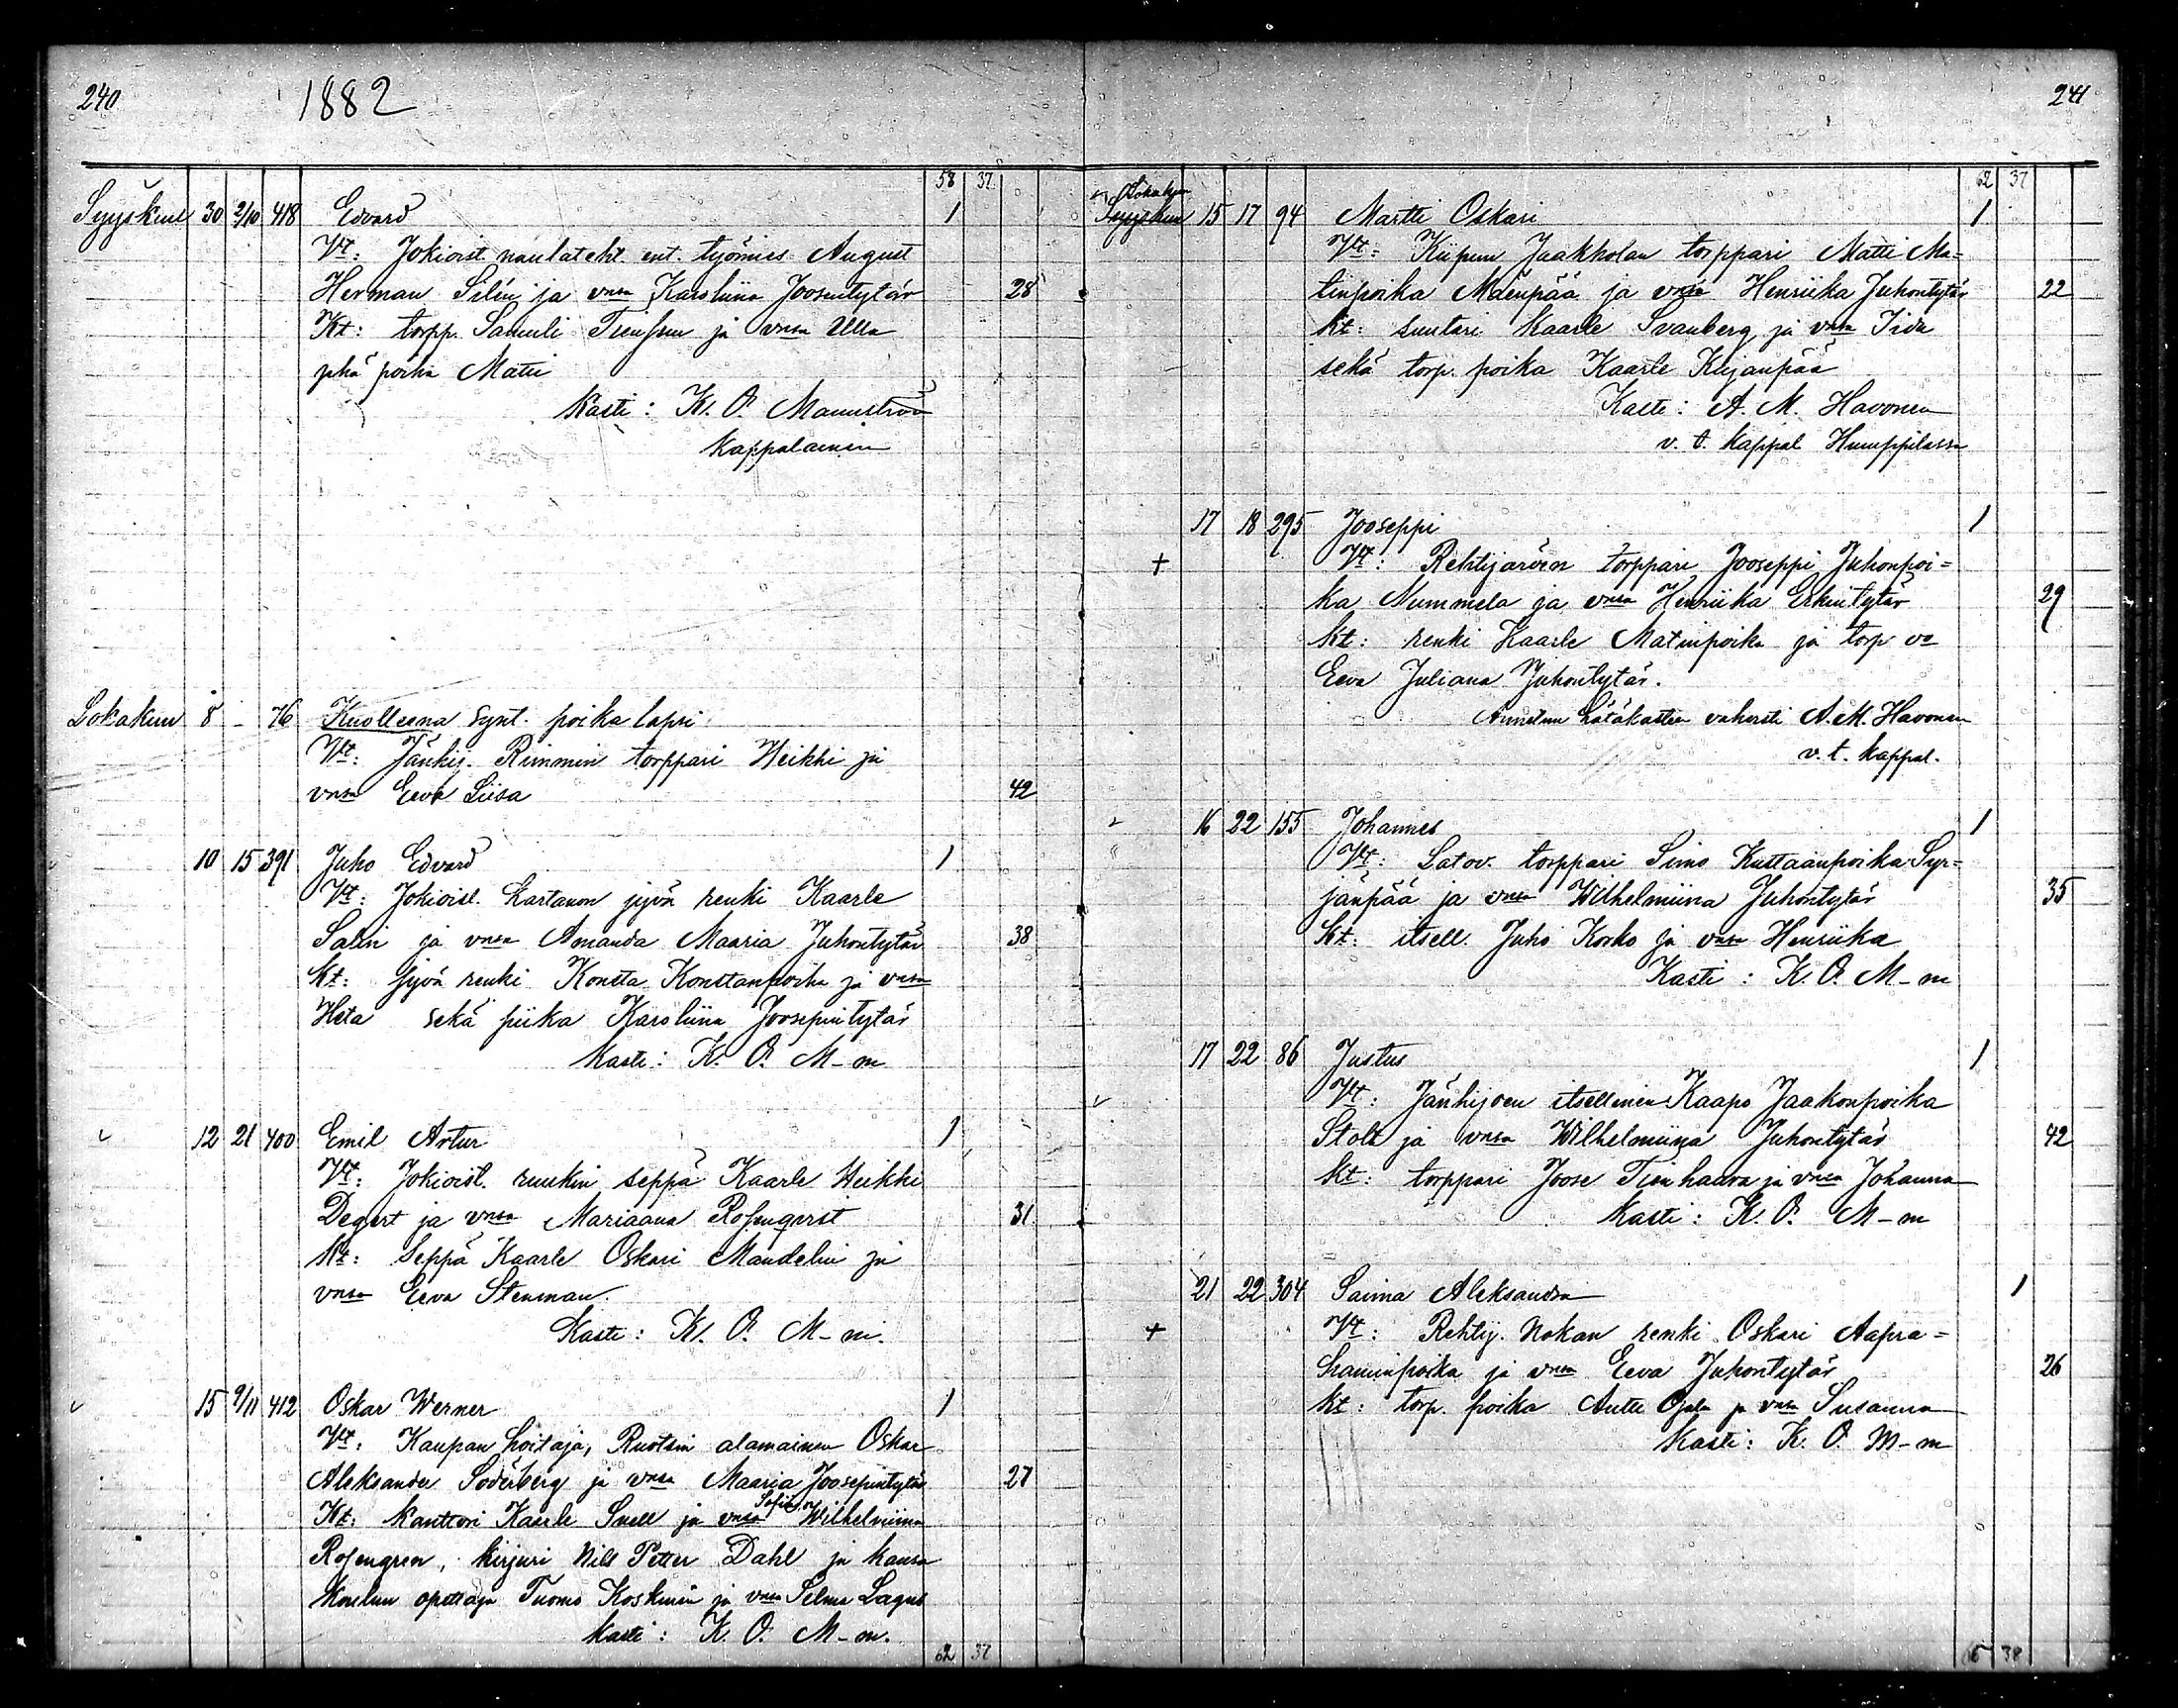 240 1882
58 37
Syyskuu 30 2/10 418 Edvard 1
Vt: Jokioist naulateht. ent. työmies August
Herman Silén ja vmsa Karoliina Joosentytär 28
Kt: torpp. Samuli ja vmsa Ulla
poika Matti
Kasti: K. O.
Kappalainen
Lokakuu 8 - 76 Kuolleena synt. poika lapsi
Vt: Jänhij. Rimmin torppari Heikki ja
vmsa Eeva Liisa 42
10 15 391 Juho Edvard 1
Vt: Jokioist. Kartanon jyvä renki Kaarle
Salin ja vmsa Amanda Maaria Juhontytär 38
Kt: jyvä renki Konsta Konstanpoika ja vmsa
Heta sekä piika Karoliina Joosepintytär
Kasti: K. O. M-m
12 21 400 Emil Artur 1
Vt: Jokioist. ruukin seppä Kaarle Heikki
Degert ja vmsa Mariaana Rosenqvist 31
Kt: Seppä Kaarle Oskari Mandelin ja
vmsa Eeva Stenman
Kasti: K. O. M-m.
15 9/11 412 Oskar Werner 1
Vt: Kaupan hoitaja, Ruotsin alamainen Oskar
Aleksander Söderberg ja vmsa Maaria Joosepintytär 27
Kt: kanttori Kaarle Snell ja vmsa Sofia Wilhelmiina
Rosengren, kirjuri Nils Petter Dahl ja kansa
koulun opettaja Tuomo Koskinen ja vmsa Selma Lagus
Kasti: K. O. M-m.
62 37
241
62 37
Lokakuu
Syyskuu 15 17 94 Martti Oskari 1
Vt: Kiipun Jaakkolan torppari Matti Ma=
tinpoika Mäenpää ja vmsa Henriika Juhontytär 22
Kt: suutari Kaarle Svanberg ja vmsa Iida
sekä torp. poika Kaarle Kujanpää
Kasti: A. M. Havonen
v. t. kappal Humppilassa
17 18 295 Jooseppi 1
+ Vt: Rehtijärven torppari Jooseppi Juhonpoi=
ka Nummela ja vmsa Henriika Erkintytär 29
Kt: renki Kaarle Matinpoika ja torp vo
Eeva Juliana Juhontytär.
Annetun hätäkasteen vahvisti A. M. Havonen
v. t. kappal.
16 22 155 Johannes 1
Vt: Latov. torppari Simo Kustaanpoika Syr=
jänpää ja vmsa Wilhelmiina Juhontytär 35
Kt: itsell. Juho Korko ja vmsa Henriika
Kasti: K. O. M-m
17 22 86 Justus 1
Vt: Jänhijoen itsellinen Kaapo Jaakonpoika
Stolt ja vmsa Wilhelmiina Juhontytär 42
Kt: torppari Joose Tienhaara ja vmsa Johanna
Kasti: K. O. M-m
21 22 304 Saima Aleksandra 1
+ Vt: Rehtij. Nokan renki Oskari Aapra=
haminpoika ja vmsa Eeva Juhontytär 26
Kt: torp. poika Antti Ojala ja vmsa Susanna
Kasti: K. O. M-m
65 38